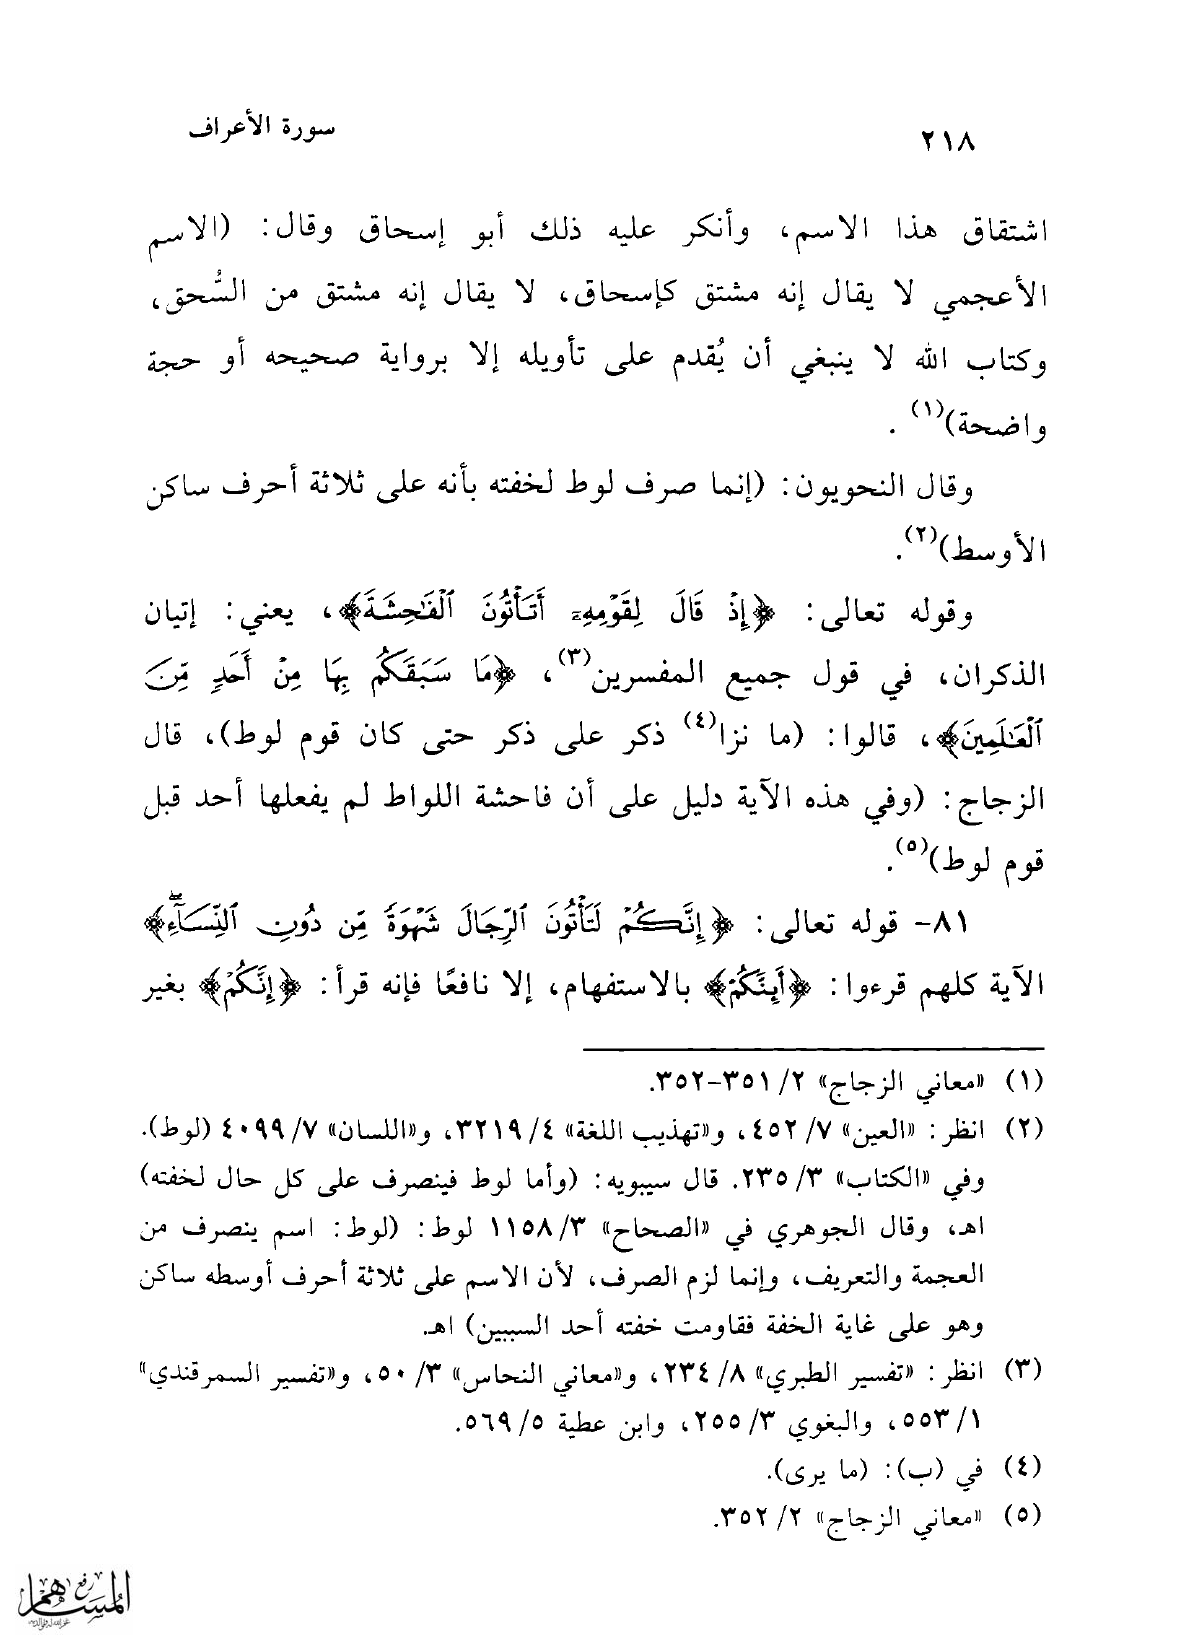 ٢١٨
سورة الأعراف
اشتقاق هذا الاسم، وأنكر عليه ذلك أبو إسحاق وقال: (الاسم
الأعجمي لا يقال إنه مشتق كإسحاق، لا يقال إنه مشتق من السُّحق،
وكتاب الله لا ينبغي أن يُقدم على تأويله إلا برواية صحيحه أو حجة
واضحة)(١) .
وقال النحويون: (إنما صرف لوط لخفته بأنه على ثلاثة أحرف ساكن
الأوسط)(٢).
وقوله تعالى: ﴿إِذْ قَالَ لِقَوْمِهِۦٓ أَتَأْتُونَ ٱلْفَٰحِشَةَ﴾، يعني: إتيان
الذكران، في قول جميع المفسرين(٣)، ﴿مَا سَبَقَكُم بِهَا مِنْ أَحَدٍ مِّنَ
ٱلْعَٰلَمِينَ﴾، قالوا: (ما نزا(٤) ذكر على ذكر حتى كان قوم لوط)، قال
الزجاج: (وفي هذه الآية دليل على أن فاحشة اللواط لم يفعلها أحد قبل
قوم لوط)(٥).
٨١- قوله تعالى: ﴿إِنَّكُمْ لَتَأْتُونَ ٱلرِّجَالَ شَهْوَةً مِّن دُونِ ٱلنِّسَآءِۚ﴾
الآية كلهم قرءوا: ﴿أَئِنَّكُمْ﴾ بالاستفهام، إلا نافعًا فإنه قرأ: ﴿إِنَّكُمْ﴾ بغير
(١) «معاني الزجاج» ٢/ ٣٥١-٣٥٢.
(٢) انظر: «العين» ٧/ ٤٥٢، و«تهذيب اللغة» ٤/ ٣٢١٩، و«اللسان» ٧/ ٤٠٩٩ (لوط).
وفي «الكتاب» ٣/ ٢٣٥. قال سيبويه: (وأما لوط فينصرف على كل حال لخفته)
اهـ، وقال الجوهري في «الصحاح» ٣/ ١١٥٨ لوط: (لوط: اسم ينصرف من
العجمة والتعريف، وإنما لزم الصرف، لأن الاسم على ثلاثة أحرف أوسطه ساكن
وهو على غاية الخفة فقاومت خفته أحد السببين) اهـ.
(٣) انظر: «تفسير الطبري» ٨/ ٢٣٤، و«معاني النحاس» ٣/ ٥٠، و«تفسير السمرقندي»
١/ ٥٥٣، والبغوي ٣/ ٢٥٥، وابن عطية ٥/ ٥٦٩.
(٤) في (ب): (ما يرى).
(٥) «معاني الزجاج» ٢/ ٣٥٢.